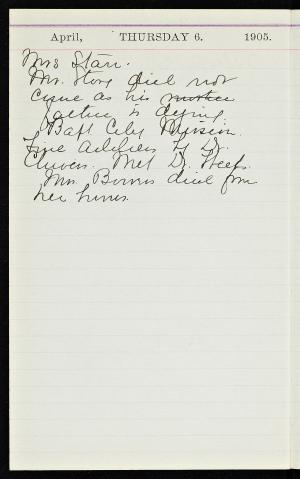 April, THURSDAY 6. 1905.
Mrs Starr.
Mr. Story did not
come as his mother
father is dying
Bapt City Mission.
Fine address by Dr.
Chivers. Met Dr.
Mrs. Bowers died from
her burns.